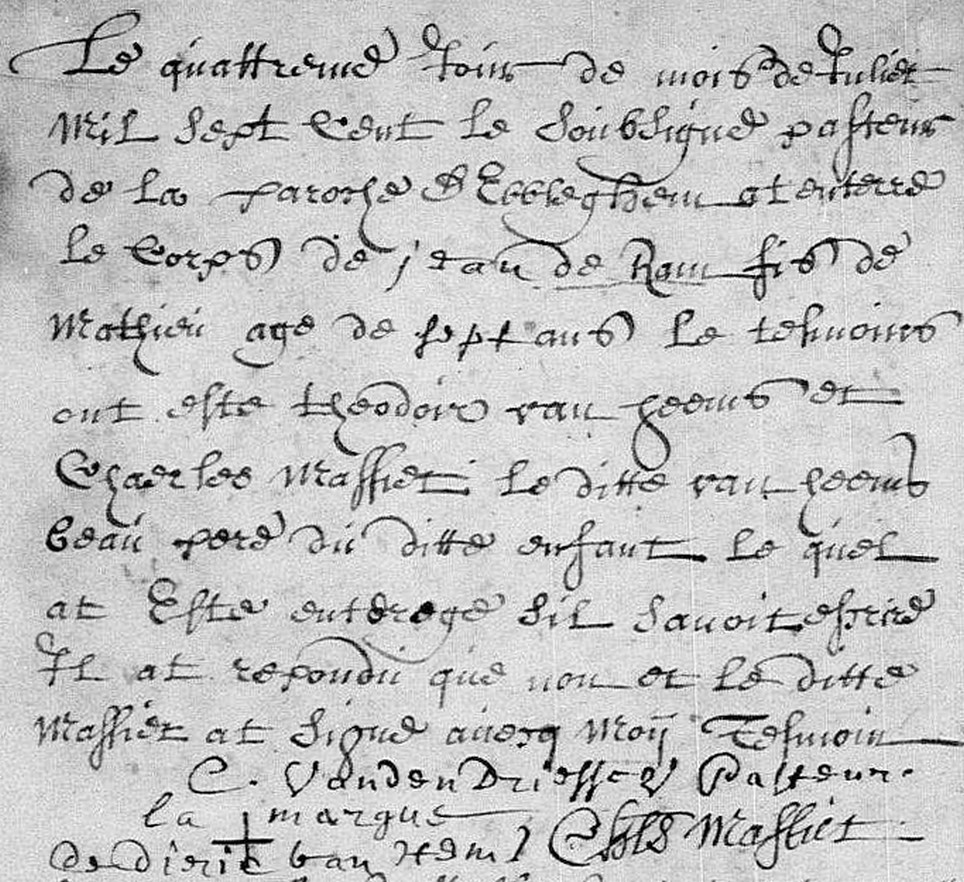 Le quattreme Jour de mois de Juliet
Mil sept Cent le soubsigne pasteur
de la paroche d'Ebbleghem at enterre
le Corps de jean de Ram fis de
Mathieu age de sept ans le tesmoins
ont este theodoir van heems et
Chaerles Massiet le ditte van heems
beau pere du ditte enfant le quel
at Este enteroge sil savoit escrire
Il at repondu que non et le ditte
Massiet at signe avecq Moÿ Tesmoin
C. VandenDriessche Pasteur.
la + marque
de dieric van Hems Chls Massiet